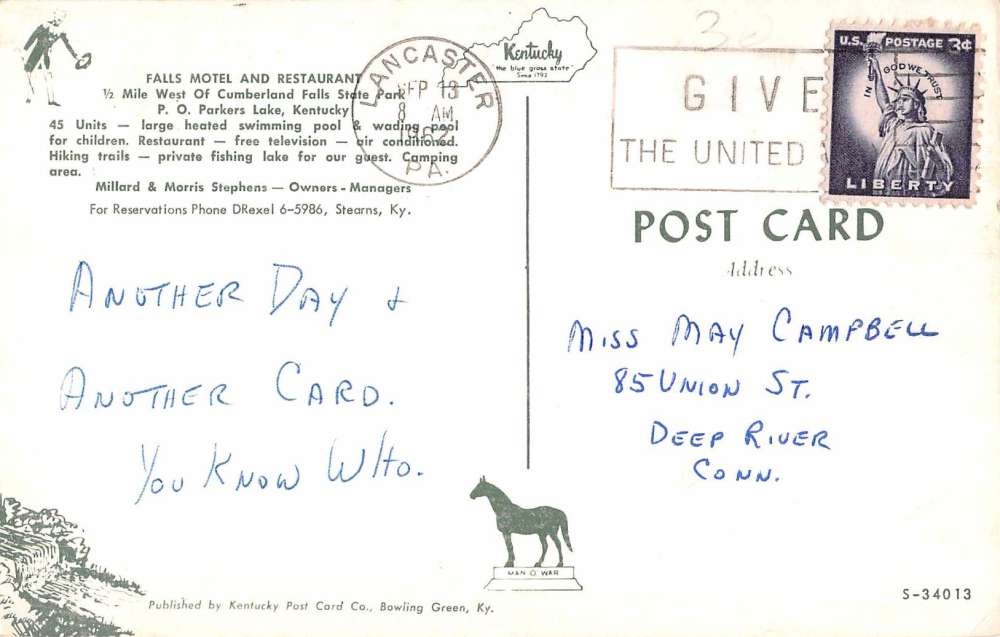 FALLS MOTEL AND RESTAURANT
½ Mile West Of Cumberland Falls State Park
P. O. Parkers Lake, Kentucky
45 Units — large heated swimming pool & wading pool
for children. Restaurant — free television — air conditioned.
Hiking trails — private fishing lake for our guest. Camping
area.
Millard & Morris Stephens — Owners - Managers
For Reservations Phone DRexel 6-5986, Stearns, Ky.
LANCASTER
SEP 13
8 AM
1962
PA.
Kentucky
"the blue grass state"
Since 1792
GIVE
THE UNITED
U.S. POSTAGE 3¢
IN GOD WE TRUST
LIBERTY
POST CARD
Address
ANOTHER DAY &
ANOTHER CARD.
YOU KNOW WHO.
MISS MAY CAMPBELL
85 UNION ST.
DEEP RIVER
CONN.
MAN O WAR
Published by Kentucky Post Card Co., Bowling Green, Ky.
S-34013